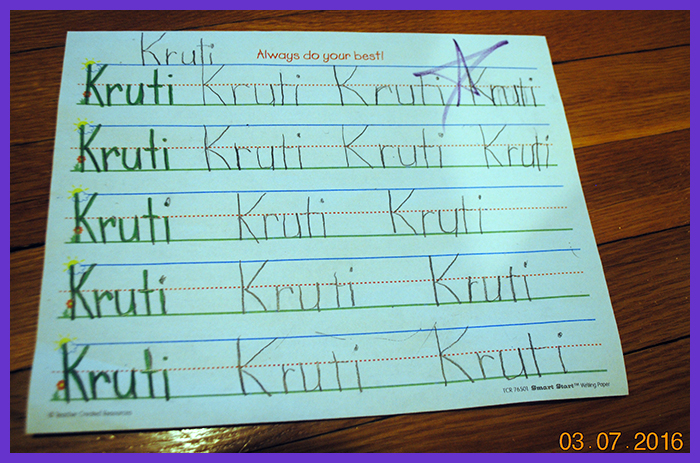 Kruti
Always do your best!
Kruti Kruti Kruti Kruti
Kruti Kruti Kruti Kruti
Kruti Kruti Kruti
Kruti Kruti Kruti
Kruti Kruti Kruti
© Teacher Created Resources TCR 76501 Smart Start™ Writing Paper
03.07.2016